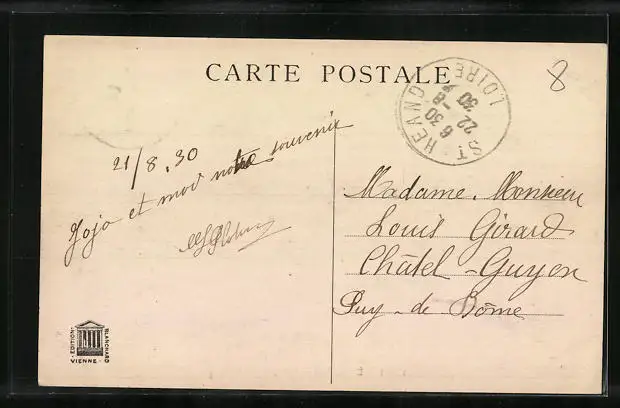 CARTE POSTALE
8
ST HEAND
LOIRE
6 30
22 -8
30
21/8.30
Jojo et moi notre souvenir
Madame, Monsieur
Louis Girard
Châtel-Guyon
Puy-de Dôme
EDITION BLANCHARD
VIENNE